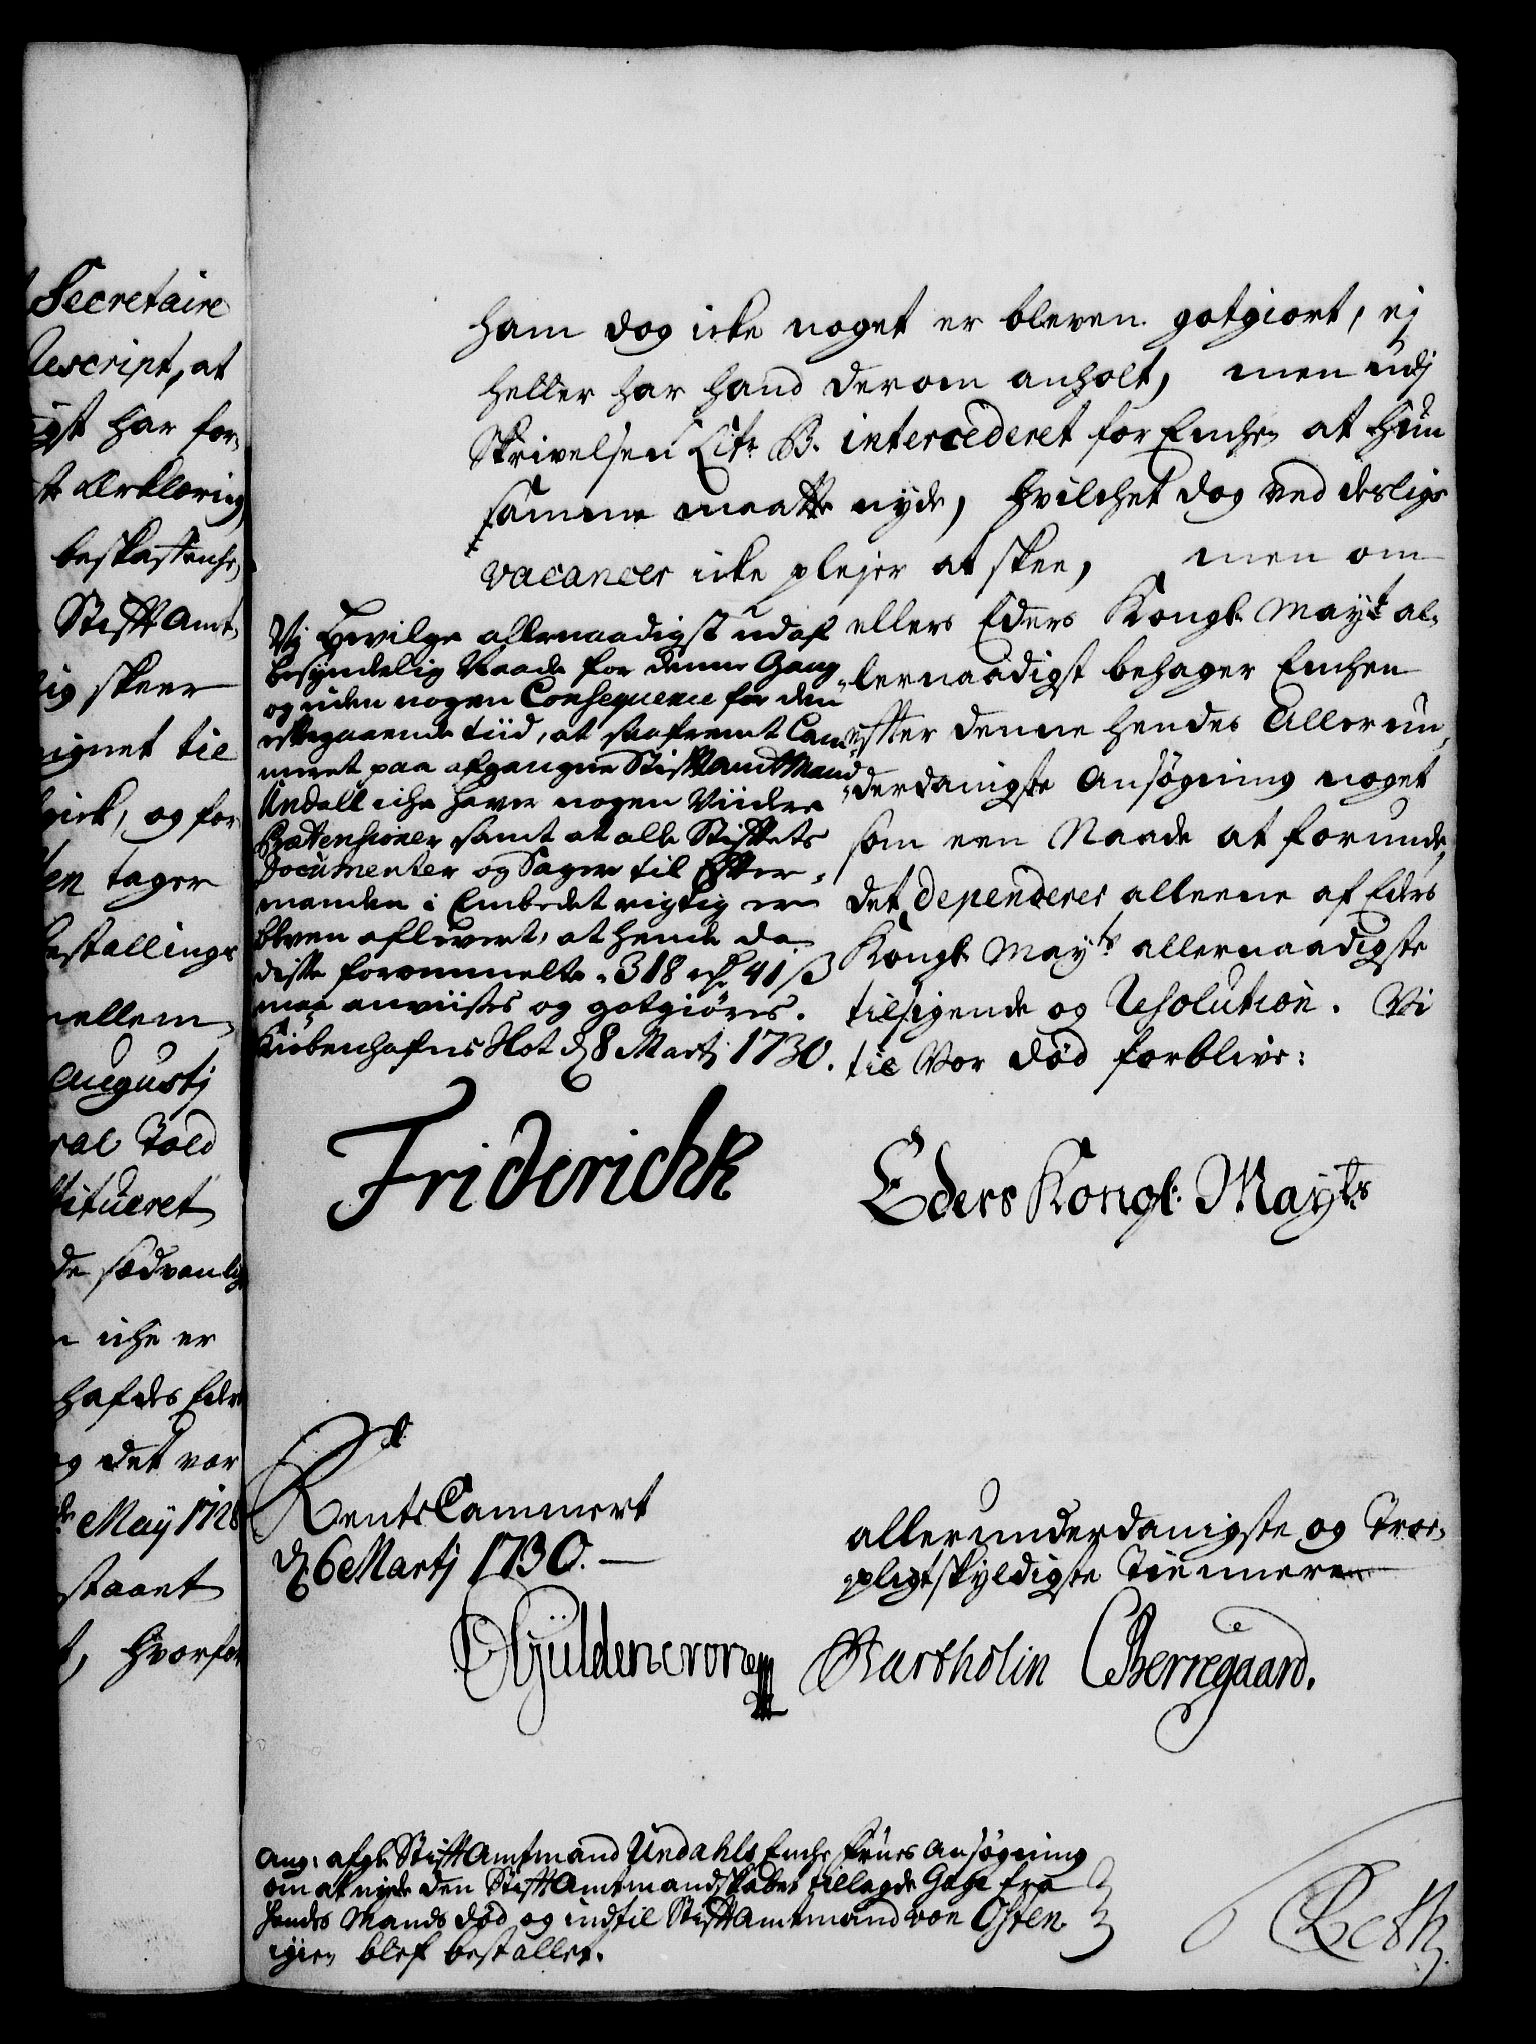 Secretaire
Rescript, at
igst har for-
te Erklæring,
beskaffenhe,
Stifft Amt-
lig skeer
ignet til
gick, og for
ten tager
estallings
mellem-
Augustj
ral Told
stitueret
de sædvanlig
n iche er
hafdes Eders
og det var
de May 1728
staaet
t, hvorfor
ham dog icke noget er bleven godtgiort, ej
heller har hand derom anholt, men udj
Skrivelsen Litr. B. intercederet for Enchen at hun
samme maatte nyde, hvilchet dog ved deslige
vacancer icke plejer at skee, men om
ellers Eders Kongl. Mayts al-
lernaadigst behager Enchen
effter denne hendes Allerun-
derdanigste Ansøgning noget
som een Naade at forunde,
det dependerer alleene af Eders
Kongl. Mayts allernaadigste
tilsigende og Resolution. Vi
til Vor død forblive:
Vj Bevilge allernaadigst udaf
besynderlig Naade for denne Gang
og uden nogen Consequence for den
effterfølgende tiid, at saafremt Cam-
meret paa afgangne StifftamtMand
Undall iche haver nogen Viidere
Prætensioner samt at alle Stifftets
Documenter og Sager til Effter-
manden i Embedet rigtig er
bleven aflevert, at hende da
disse forommelte 318 rdr. 41 ß
maa anviises og gotgiøres.
Kiøbenhafns Slot d. 8 Martj 1730.
Friderich R
Eders Kongl. Mayts
RenteCammert
d. 6 Martj 1730.
allerunderdanigste og Troe-
pligtskyldigste Tiennere
C Güldencrone
Bartholin CBerregaard.
Ang: afgl. StifftAmtmand Undahls Enche Frues Ansøgning
om at nyde den StifftAmtmandskabet tillagde Gage fra
hendes Mands død og indtil StifftAmtmand von Osten
igien blef bestallet.